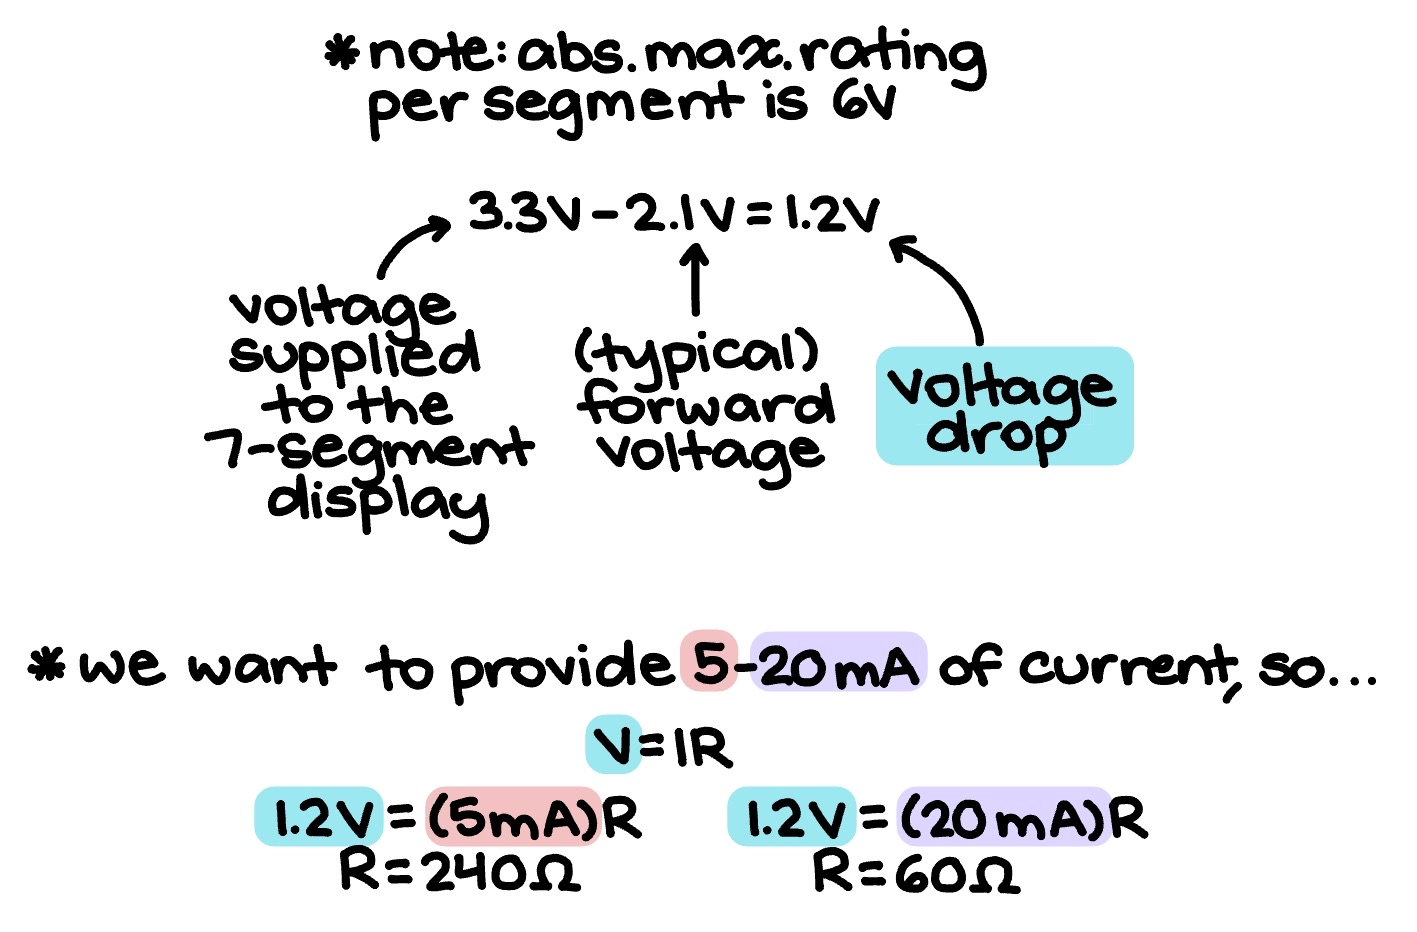 *note: abs. max. rating
per segment is 6V
3.3V-2.1V=1.2V
voltage
supplied
to the
7-segment
display
(typical)
forward
voltage
voltage
drop
*we want to provide 5-20mA of current, so...
V=IR
1.2V=(5mA)R
R=240Ω
1.2V=(20mA)R
R=60Ω